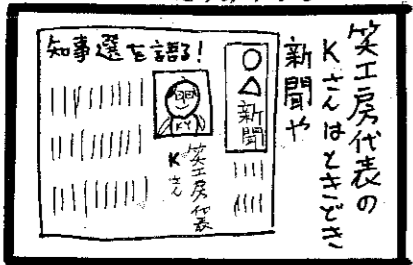 笑工房代表の
Kさんはときどき
新聞や
○△新聞
知事選を語る!
KY
笑工房代表
Kさん